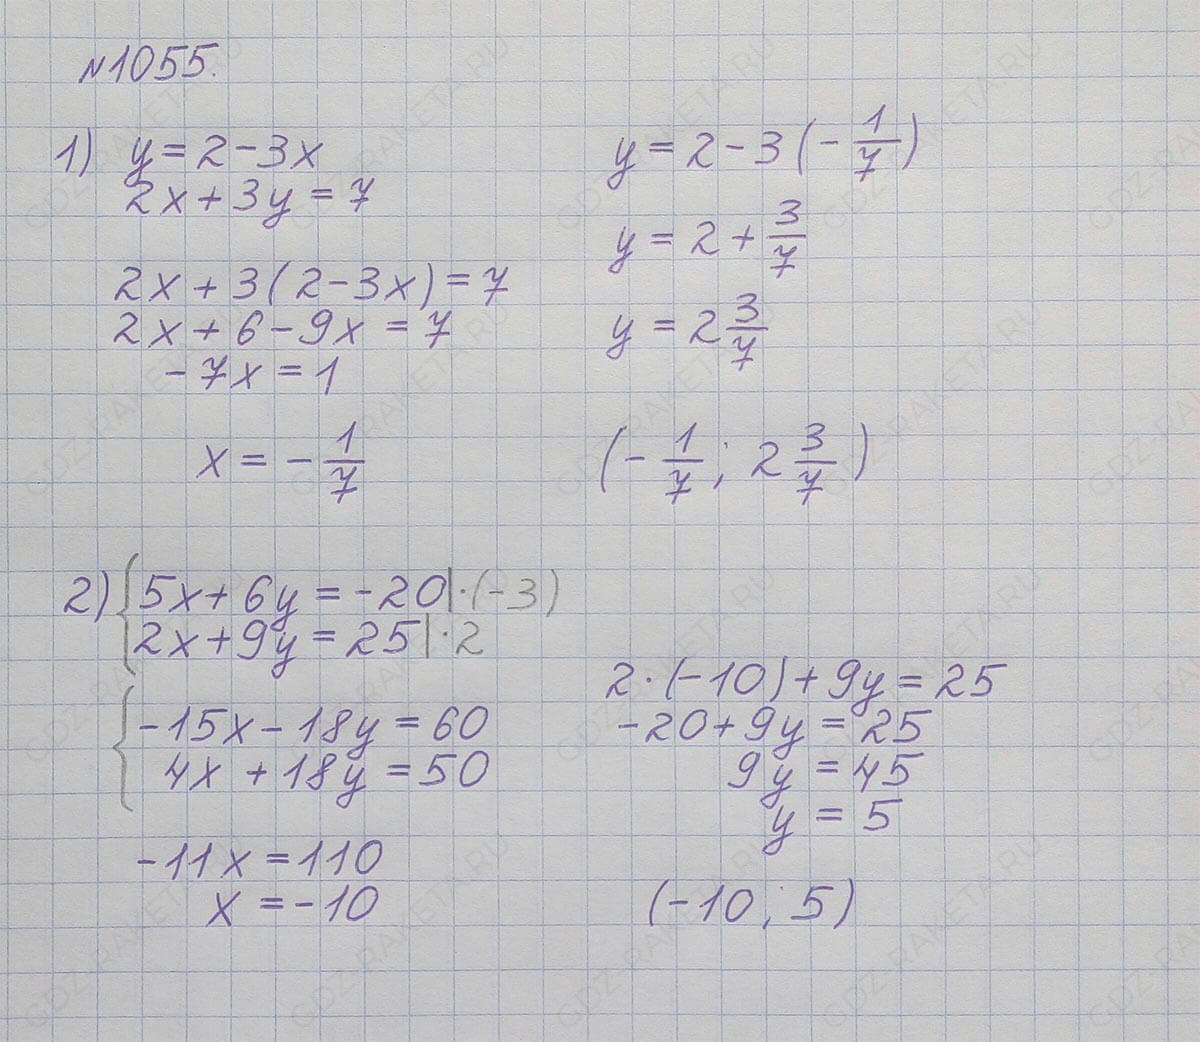 №1055.
1) y = 2 - 3x
2x + 3y = 7
2x + 3(2 - 3x) = 7
2x + 6 - 9x = 7
-7x = 1
x = -1/7
y = 2 - 3(-1/7)
y = 2 + 3/7
y = 2 3/7
(-1/7; 2 3/7)
2) {5x + 6y = -20 | ·(-3)
2x + 9y = 25 | ·2
{-15x - 18y = 60
4x + 18y = 50
-11x = 110
x = -10
2·(-10) + 9y = 25
-20 + 9y = 25
9y = 45
y = 5
(-10; 5)
GDZ-RAKETA.RU